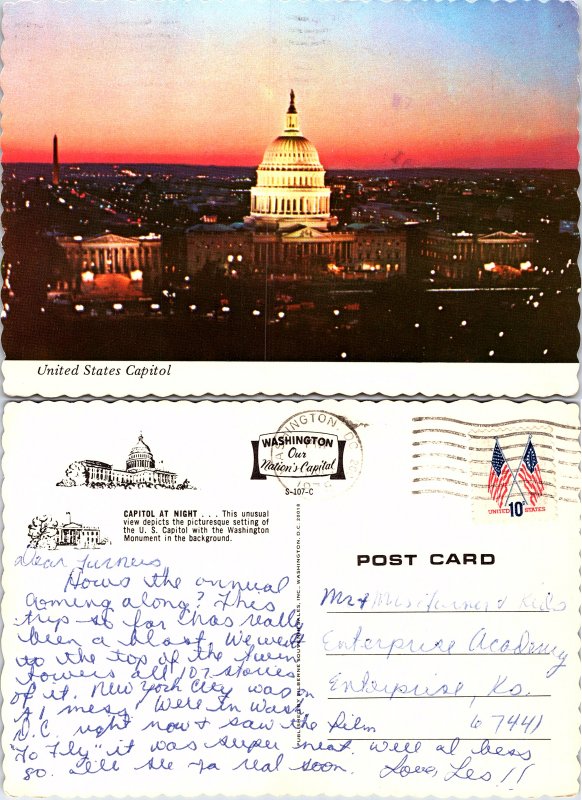 United States Capitol
WASHINGTON
Our
Nation's Capital
S-107-C
WASHINGTON, DC
UNITED 10c STATES
CAPITOL AT NIGHT . . . This unusual
view depicts the picturesque setting of
the U. S. Capitol with the Washington
Monument in the background.
POST CARD
Dear Turners
Hows the annual
coming along? This
trip so far has really
been a blast. We went
to the top of the twin
towers all 107 stories
of it. New York City was
a mess! We're in Wash
D.C. right now & saw the film
"To Fly" it was super neat. Well al bess
go. Tell see ya real soon. Love, Les !!
Mr & Mrs Turner & Kids
Enterprise Academy
Enterprise, Ks.
67441